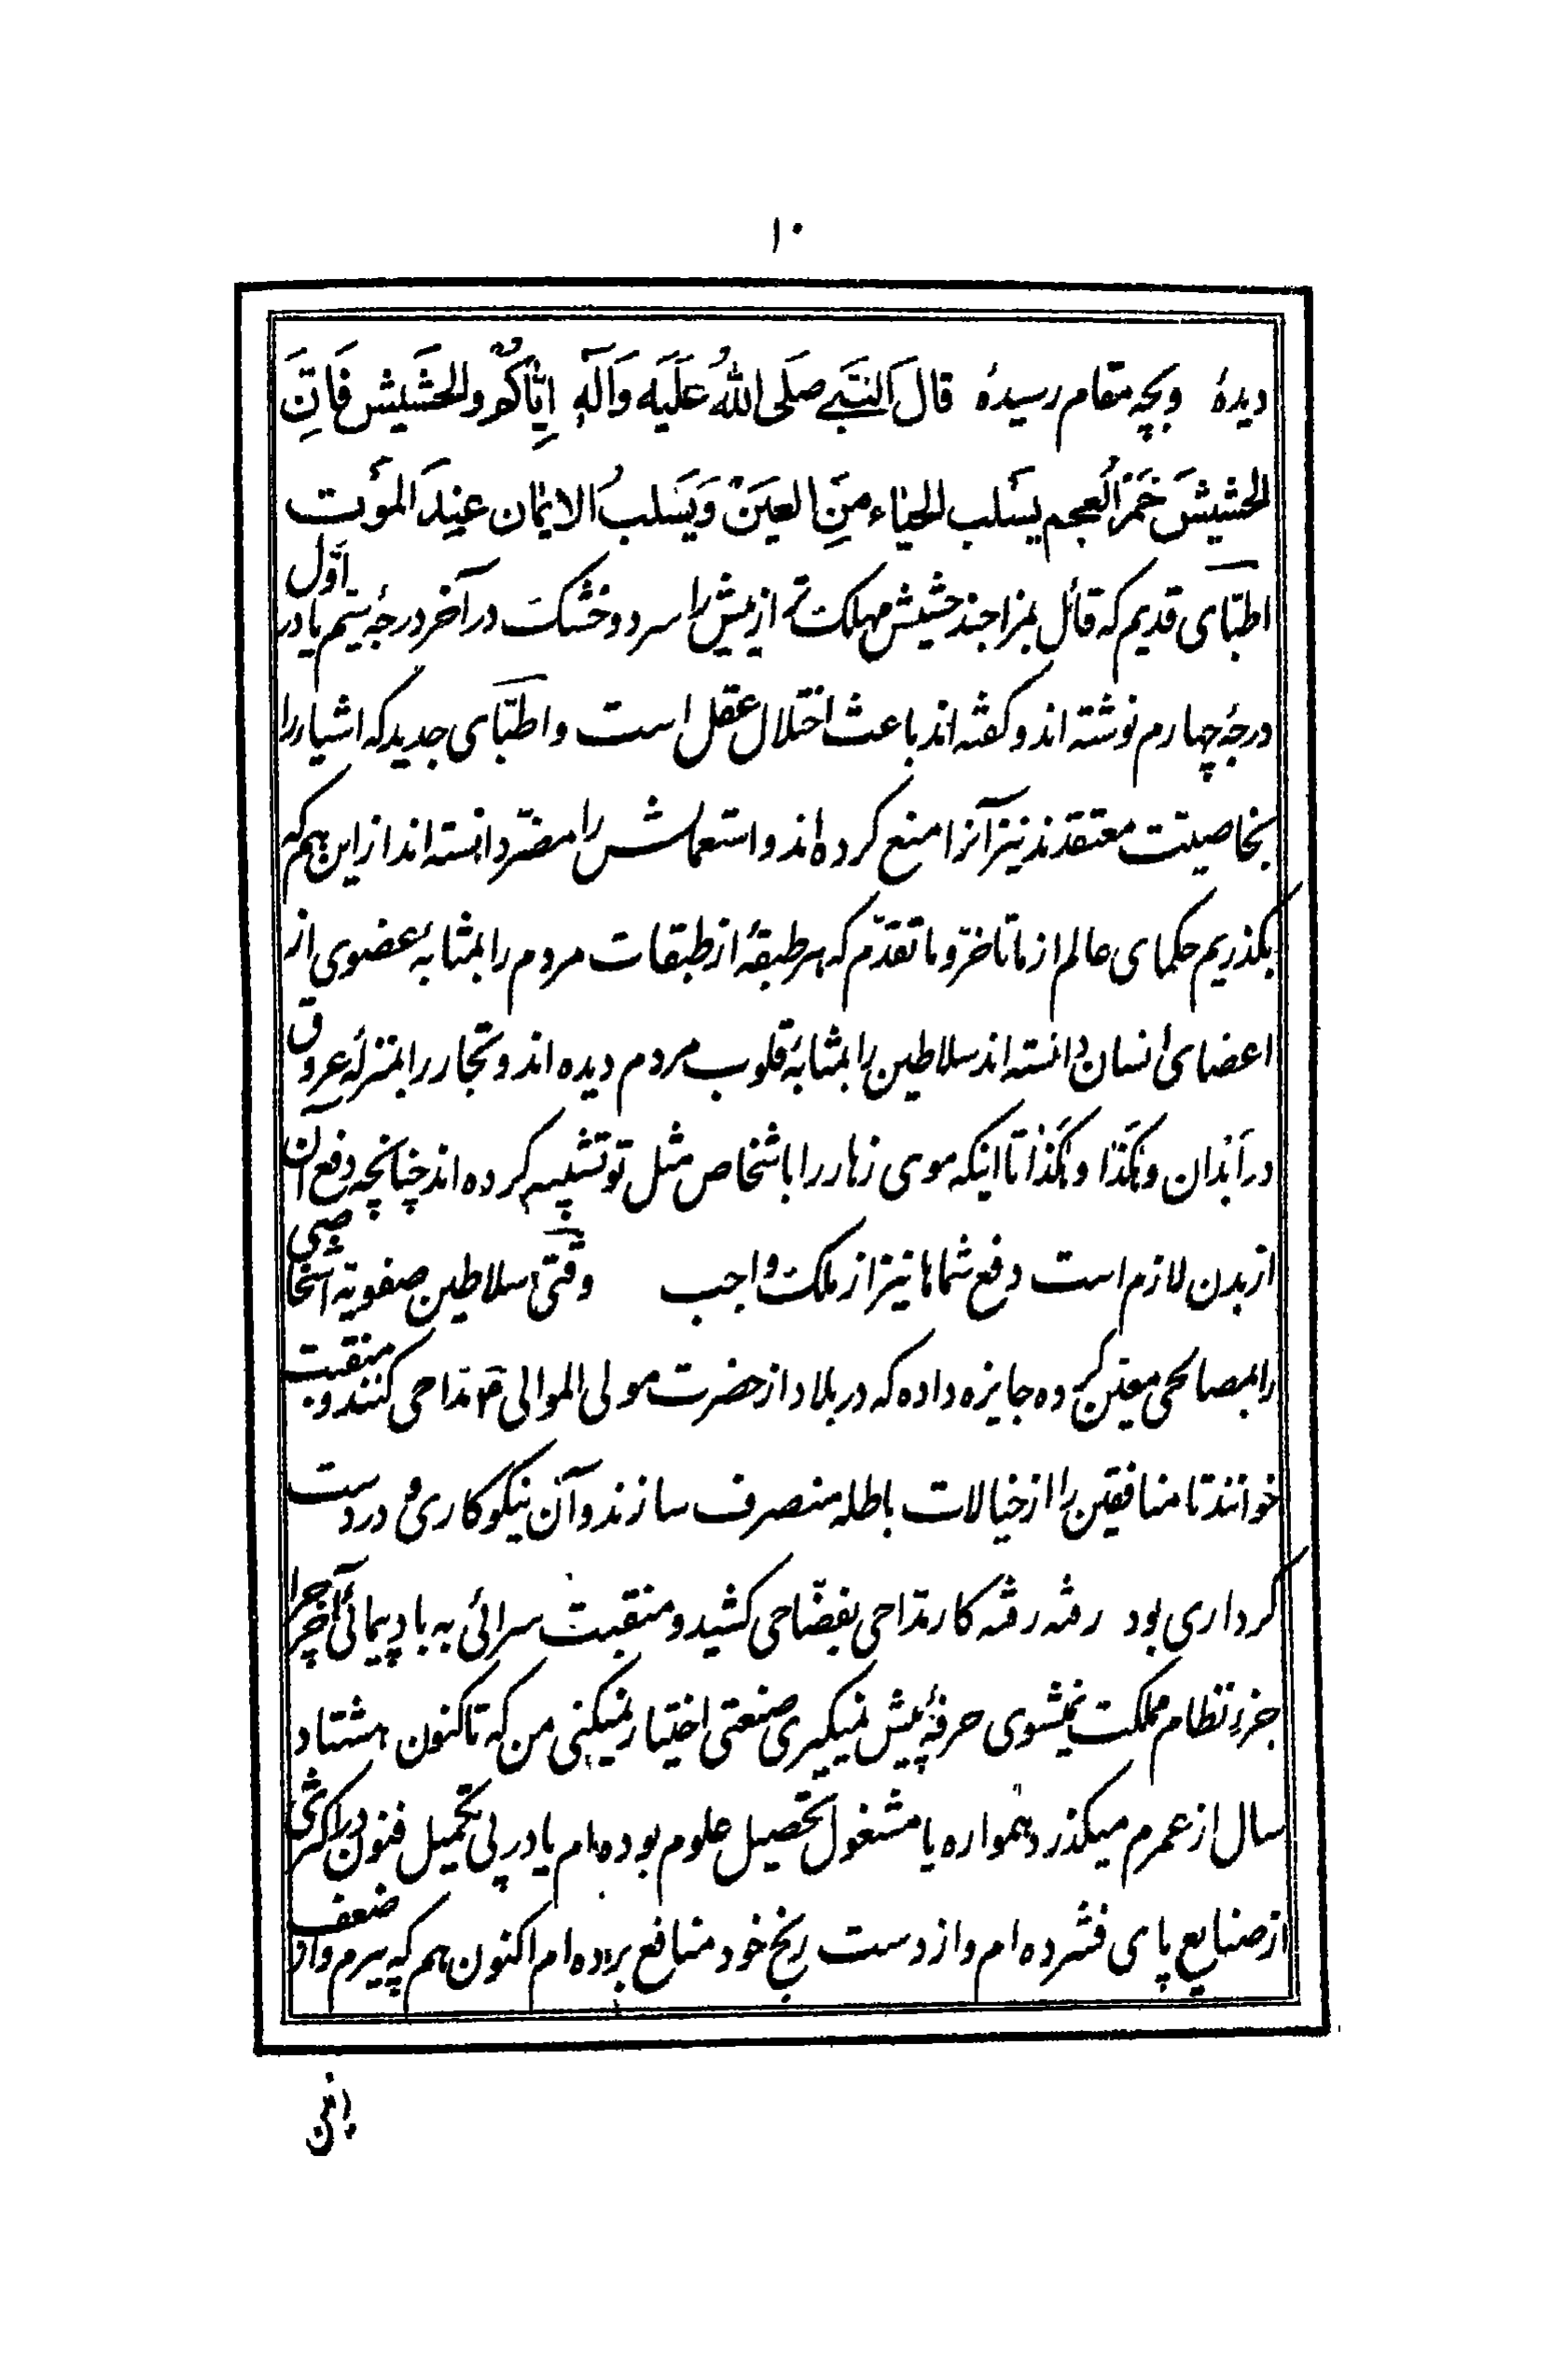 ۱۰
دیدهٔ وبچه مقام رسیدهٔ قالَ النَّبي صَلَی اللهُ عَلَیَه وَآلَهِ اِیّاکُم والحَشَیش فَاِنَّ
الحشیشَ خَمَر العجم یسَلب الحیاء منَ العَینْ وَیَسَلبُ الایمان عِندَ المَوت
اطبّای قدیم که قائل بمزاجند حشیش مهلک تر از بیش را سرد و خشک در آخر درجهٔ سیّم یا در اوّل
درجهٔ چهارم نوشته اند و گفته اند باعث اختلال عقل است و اطبّای جدید که اشیا را
بخاصیت معتقدند نیز آنرا منع کرده اند و استعمالش را مضرّ دانسته اند از این هم که
بگذریم حکمای عالم از ما تأخر و ما تقدّم که هر طبقهٔ از طبقات مردم را بمثابهٔ عضوی از
اعضای انسان دانسته اند سلاطین را بمثابهٔ قلوب مردم دیده اند و تجار را بمنزلهٔ عروق
در آبدان و هکَذا و هکَذا تا اینکه موی زهار را باشخاص مثل تو تشبیه کرده اند چنانچه دفع آن
از بدن لازم است دفع شماها نیز از ملک واجب وقتی سلاطین صفویّه اشخاصی
را بمصالحی معیّن کرده جایزه داده که در بلاد از حضرت مولی الموالی ع مدّاحی کنند و منقبت
خوانند تا منافقین را از خیالات باطله منصرف سازند و آن نیکو کاری و درست
کرداری بود رفته رفته کار مدّاحی بفضّاحی کشید و منقبت سرائی به باد پیمائی آخر چرا
جزءِ نظام مملکت نمیشوی حرفهٔ پیش نمیگیری صنعتی اختیار نمیکنی من که تاکنون هشتاد
سال از عمرم میگذرد همواره یا مشغول تحصیل علوم بوده ام یا در پی تکمیل فنون در اکثری
از صنایع پای فشرده ام و از دست رنج خود منافع برده ام اکنون هم که پیرم و از ضعف